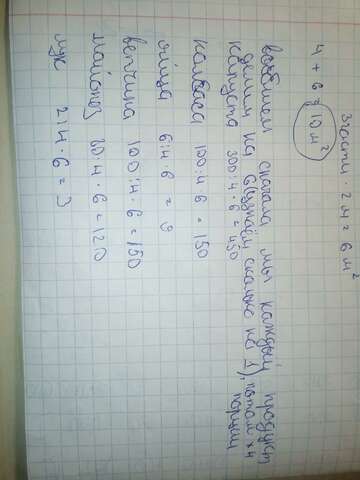 3части · 2м = 6м²
4 + 6 = 10м²
вобщем сначала мы каждый продукт
делим на 4(узнаём сколько на 1), потом х 4 порции
капуста 300:4·6=450
колбаса 100:4·6=150
яйца 6:4·6=9
ветчина 100:4·6=150
майонез 80:4·6=120
лук 2:4·6=3